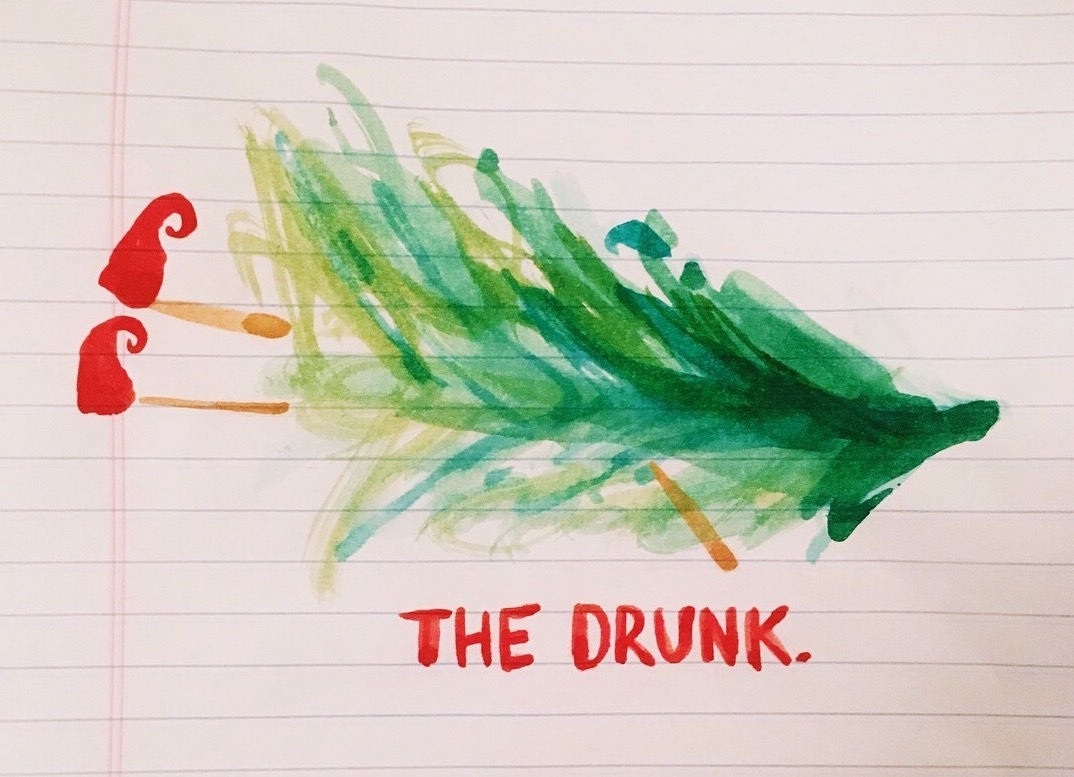 THE DRUNK.